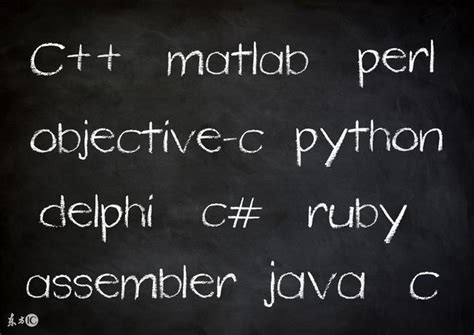 C++ matlab perl
objective-c python
delphi c# ruby
assembler java c
东方IC